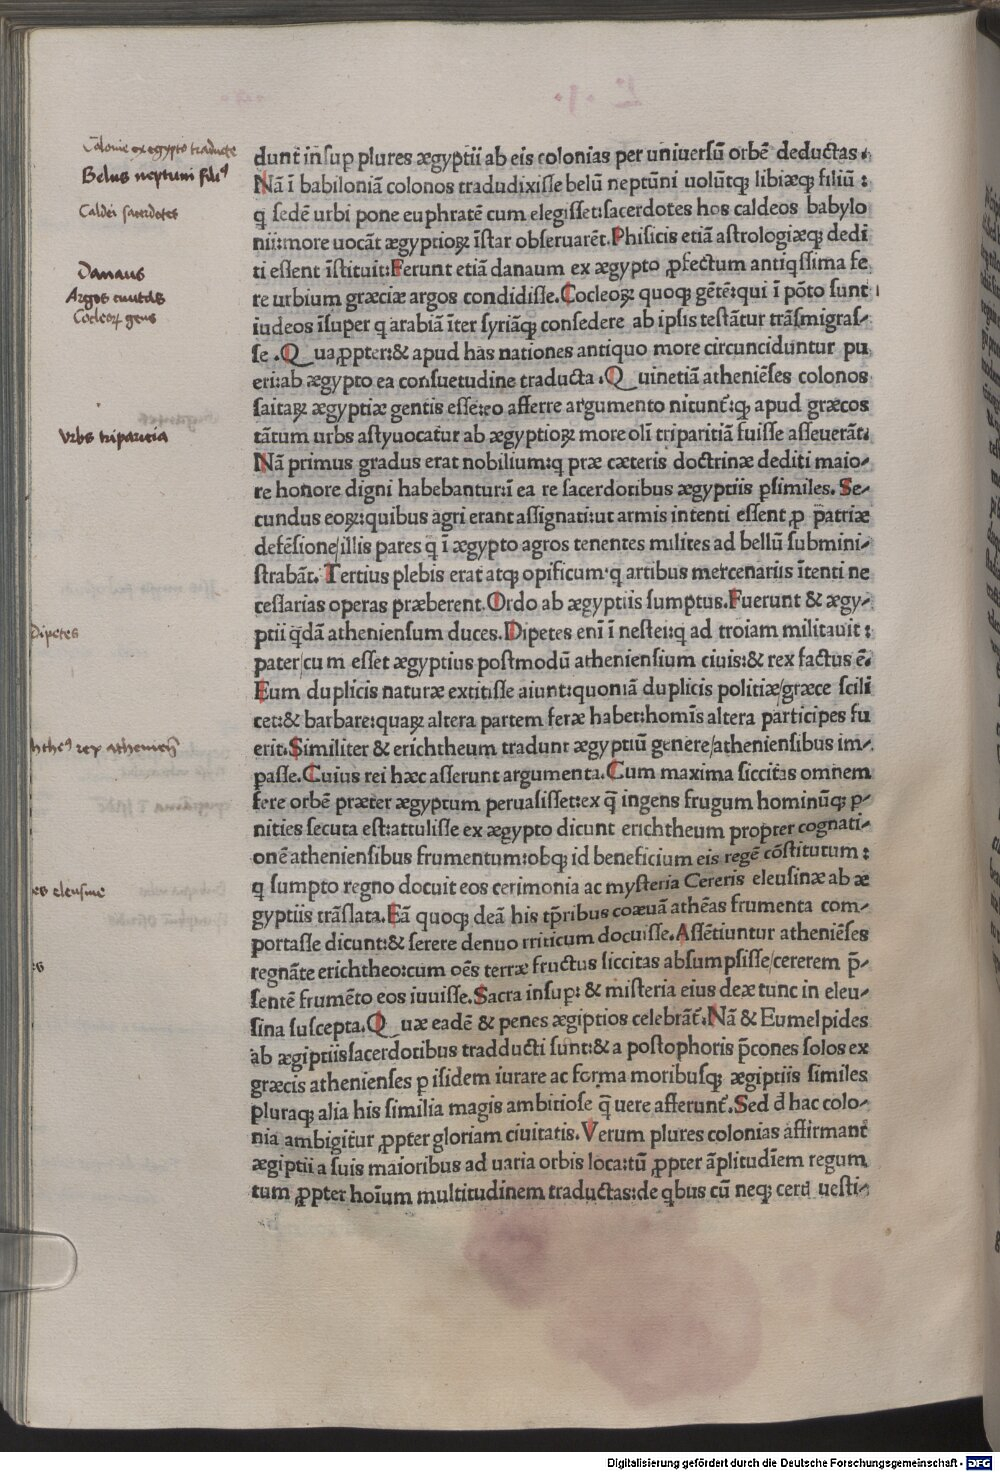 Colonie ex egypto traducte
Belus neptuni fili⁹
Caldei sacerdotes
Danaus
Argos ciuitas
Cocleoꝝ gens
Vrbs tripartita
Dipetes
rex atheniēs
eleusine
dunt insup plures ægyptii ab eis colonias per uniuersū orbē deductas.
Nā ī babiloniā colonos tradudixisse belū neptūni uolūtqꝫ libiæqꝫ filiū :
q sedē urbi pone euphratē cum elegisset:sacerdotes hos caldeos babylo
nii:more uocāt ægyptioꝝ īstar obseruarēt.Phisicis etiā astrologiæqꝫ dedi
ti essent īstituit:Ferunt etiā danaum ex ægypto ꝓfectum antiqssima fe
re urbium græciæ argos condidisse.Cocleoꝝ quoqꝫ gētē:qui ī pōto sunt
iudeos īsuper q arabiā īter syriāqꝫ consedere ab ipsis testātur trāsmigras⸗
se .Qua ꝓpter:& apud has nationes antiquo more circunciduntur pu
eri:ab ægypto ea consuetudine traducta .Quinetiā atheniēses colonos
saitaꝝ ægyptiæ gentis esse:eo afferre argumento nitunt̄:qꝫ apud græcos
tātum urbs astyuocatur ab ægyptioꝝ more olī tripartitā fuisse asseuerāt:
Nā primus gradus erat nobilium:q præ cæteris doctrinæ dediti maio⸗
re honore digni habebantur:ī ea re sacerdotibus ægyptiis ꝑsimiles. Se⸗
cundus eoꝝ:quibus agri erant assignati:ut armis intenti essent ꝓ patriæ
defēsione/illis pares q ī ægypto agros tenentes milites ad bellū submini⸗
strabāt. Tertius plebis erat atqꝫ opificum:q artibus mercenariis ītenti ne
cessarias operas præberent.Ordo ab ægyptiis sumptus.Fuerunt & ægy⸗
ptii qdā atheniensum duces.Dipetes enī ī nestei:q ad troiam militauit :
pater/cu m esset ægyptius postmodū atheniensium ciuis:& rex factus ē.
Eum duplicis naturæ extitisse aiunt:quoniā duplicis politiæ/græce scili
cet:& barbare:quaꝝ altera partem feræ habet:homīs altera participes fu
erit.Similiter & erichtheum tradunt ægyptiū genere/atheniensibus im⸗
passe.Cuius rei hæc asserunt argumenta.Cum maxima siccitas omnem
fere orbē præter ægyptum peruasisset:ex q̄ ingens frugum hominūqꝫ ꝑ⸗
nities secuta est:attulisse ex ægypto dicunt erichtheum propter cognati⸗
onē atheniensibus frumentum:obqꝫ id beneficium eis regē cōstitutum :
q sumpto regno docuit eos cerimonia ac mysteria Cereris eleusinæ ab æ
gyptiis trāslata.Eā quoqꝫ deā his tp̄ribus coæuā athēas frumenta com⸗
portasse dicunt:& serere denuo rriticum docuisse.Assētiuntur atheniēses
regnāte erichtheo:cum oēs terræ fructus siccitas absumpsisse/cererem p̄⸗
sentē frumēto eos iuuisse.Sacra insup: & misteria eius deæ tunc in eleu⸗
sina suscepta.Quæ eadē & penes ægiptios celebrāt̄.Nā & Eumelpides
ab ægiptiis sacerdotibus tradducti sunt:& a postophoris p̄cones solos ex
græcis athenienses ꝑ isidem iurare ac forma moribusqꝫ ægiptiis similes
pluraqꝫ alia his similia magis ambitiose q̄ uere afferunt̄.Sed d̄ hac colo⸗
nia ambigitur ꝓpter gloriam ciuitatis.Verum plures colonias affirmant
ægiptii a suis maioribus ad uaria orbis loca:tū ꝓpter āplitudīem regum
tum ꝓpter hoīum multitudinem traductas:de qbus cū neqꝫ certi uesti⸗
Digitalisierung gefördert durch die Deutsche Forschungsgemeinschaft - DFG